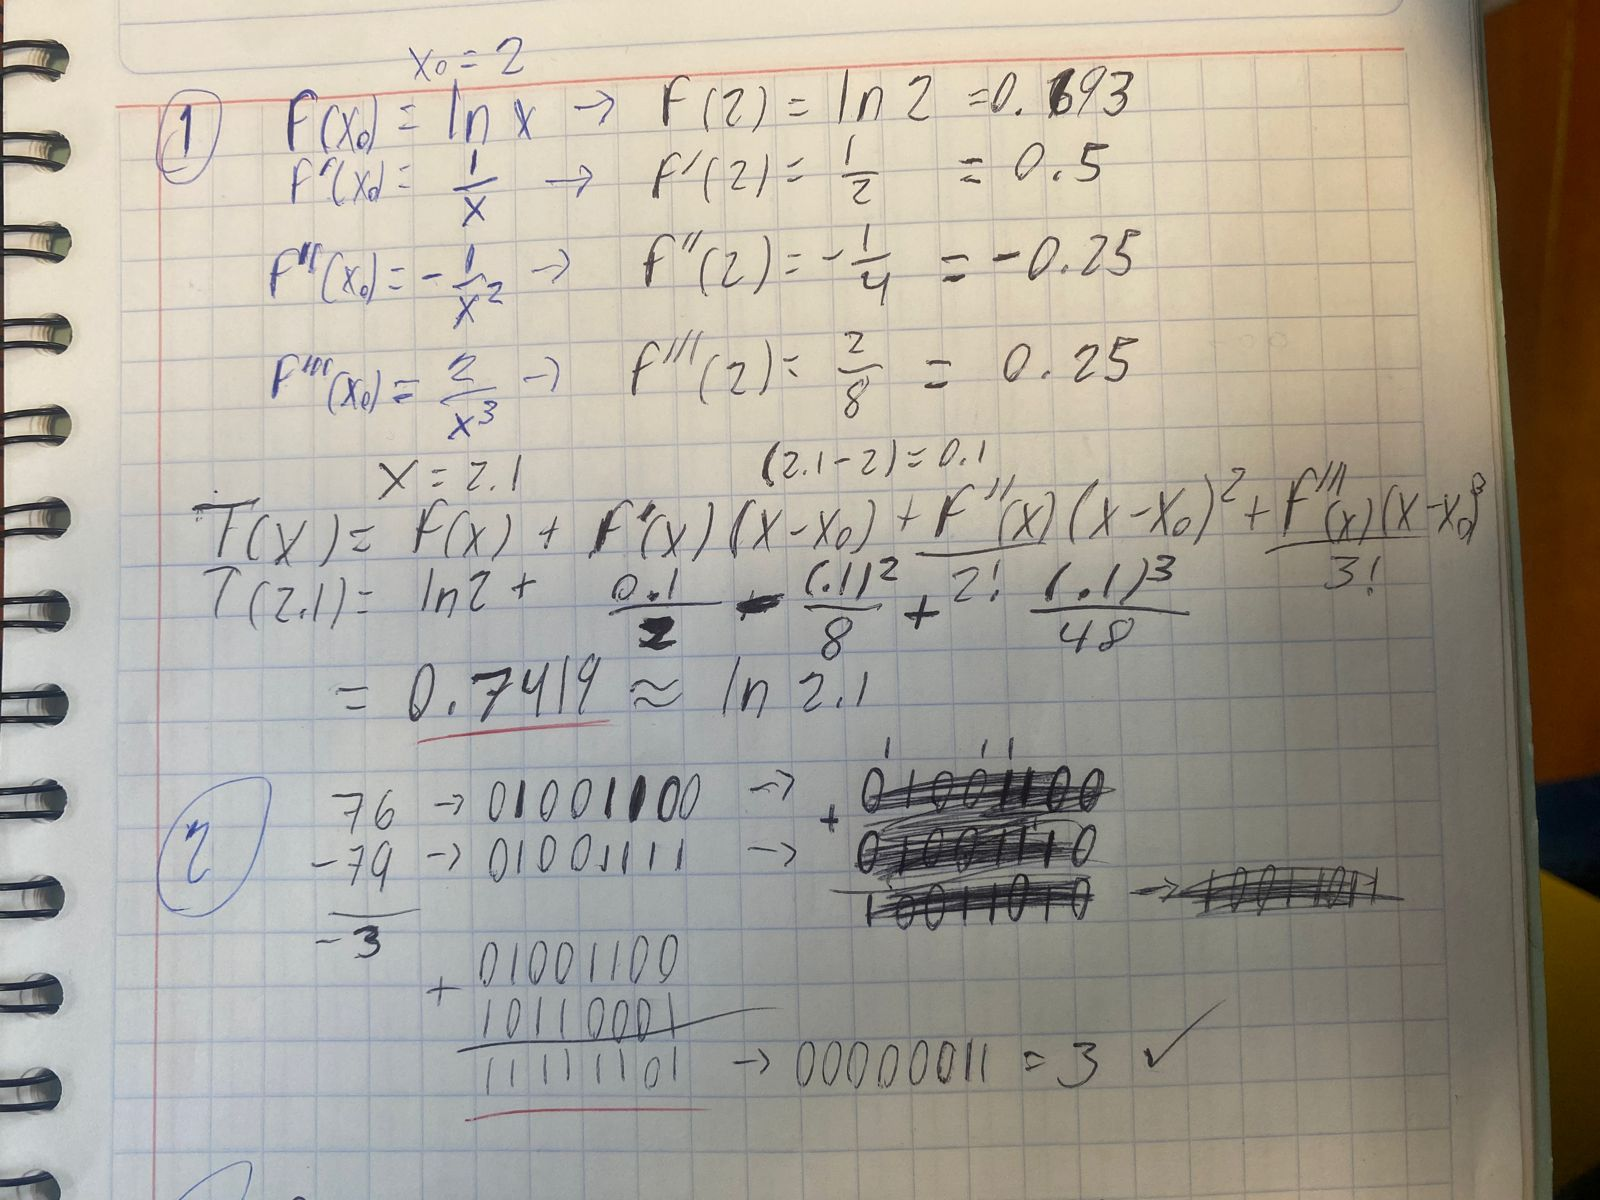 x₀ = 2
1 F(x₀) = ln x → F(2) = ln 2 = 0.693
F'(x₀) = 1/x → F'(2) = 1/2 = 0.5
F''(x₀) = -1/x² → F''(2) = -1/4 = -0.25
F'''(x₀) = 2/x³ → F'''(2) = 2/8 = 0.25
x = 2.1 (2.1-2) = 0.1
T(x) = F(x) + F'(x)(x-x₀) + F''(x)/2! (x-x₀)² + F'''(x)/3! (x-x₀)³
T(2.1) = ln2 + 0.1/2 - (.1)²/8 + (.1)³/48
= 0.7419 ≈ ln 2.1
2 76 → 01001100 → + 01001100
-79 → 01001111 → 01001110
-3 10011010 → 10011011
+ 01001100
10110001
11111101 → 00000011 = 3 ✓